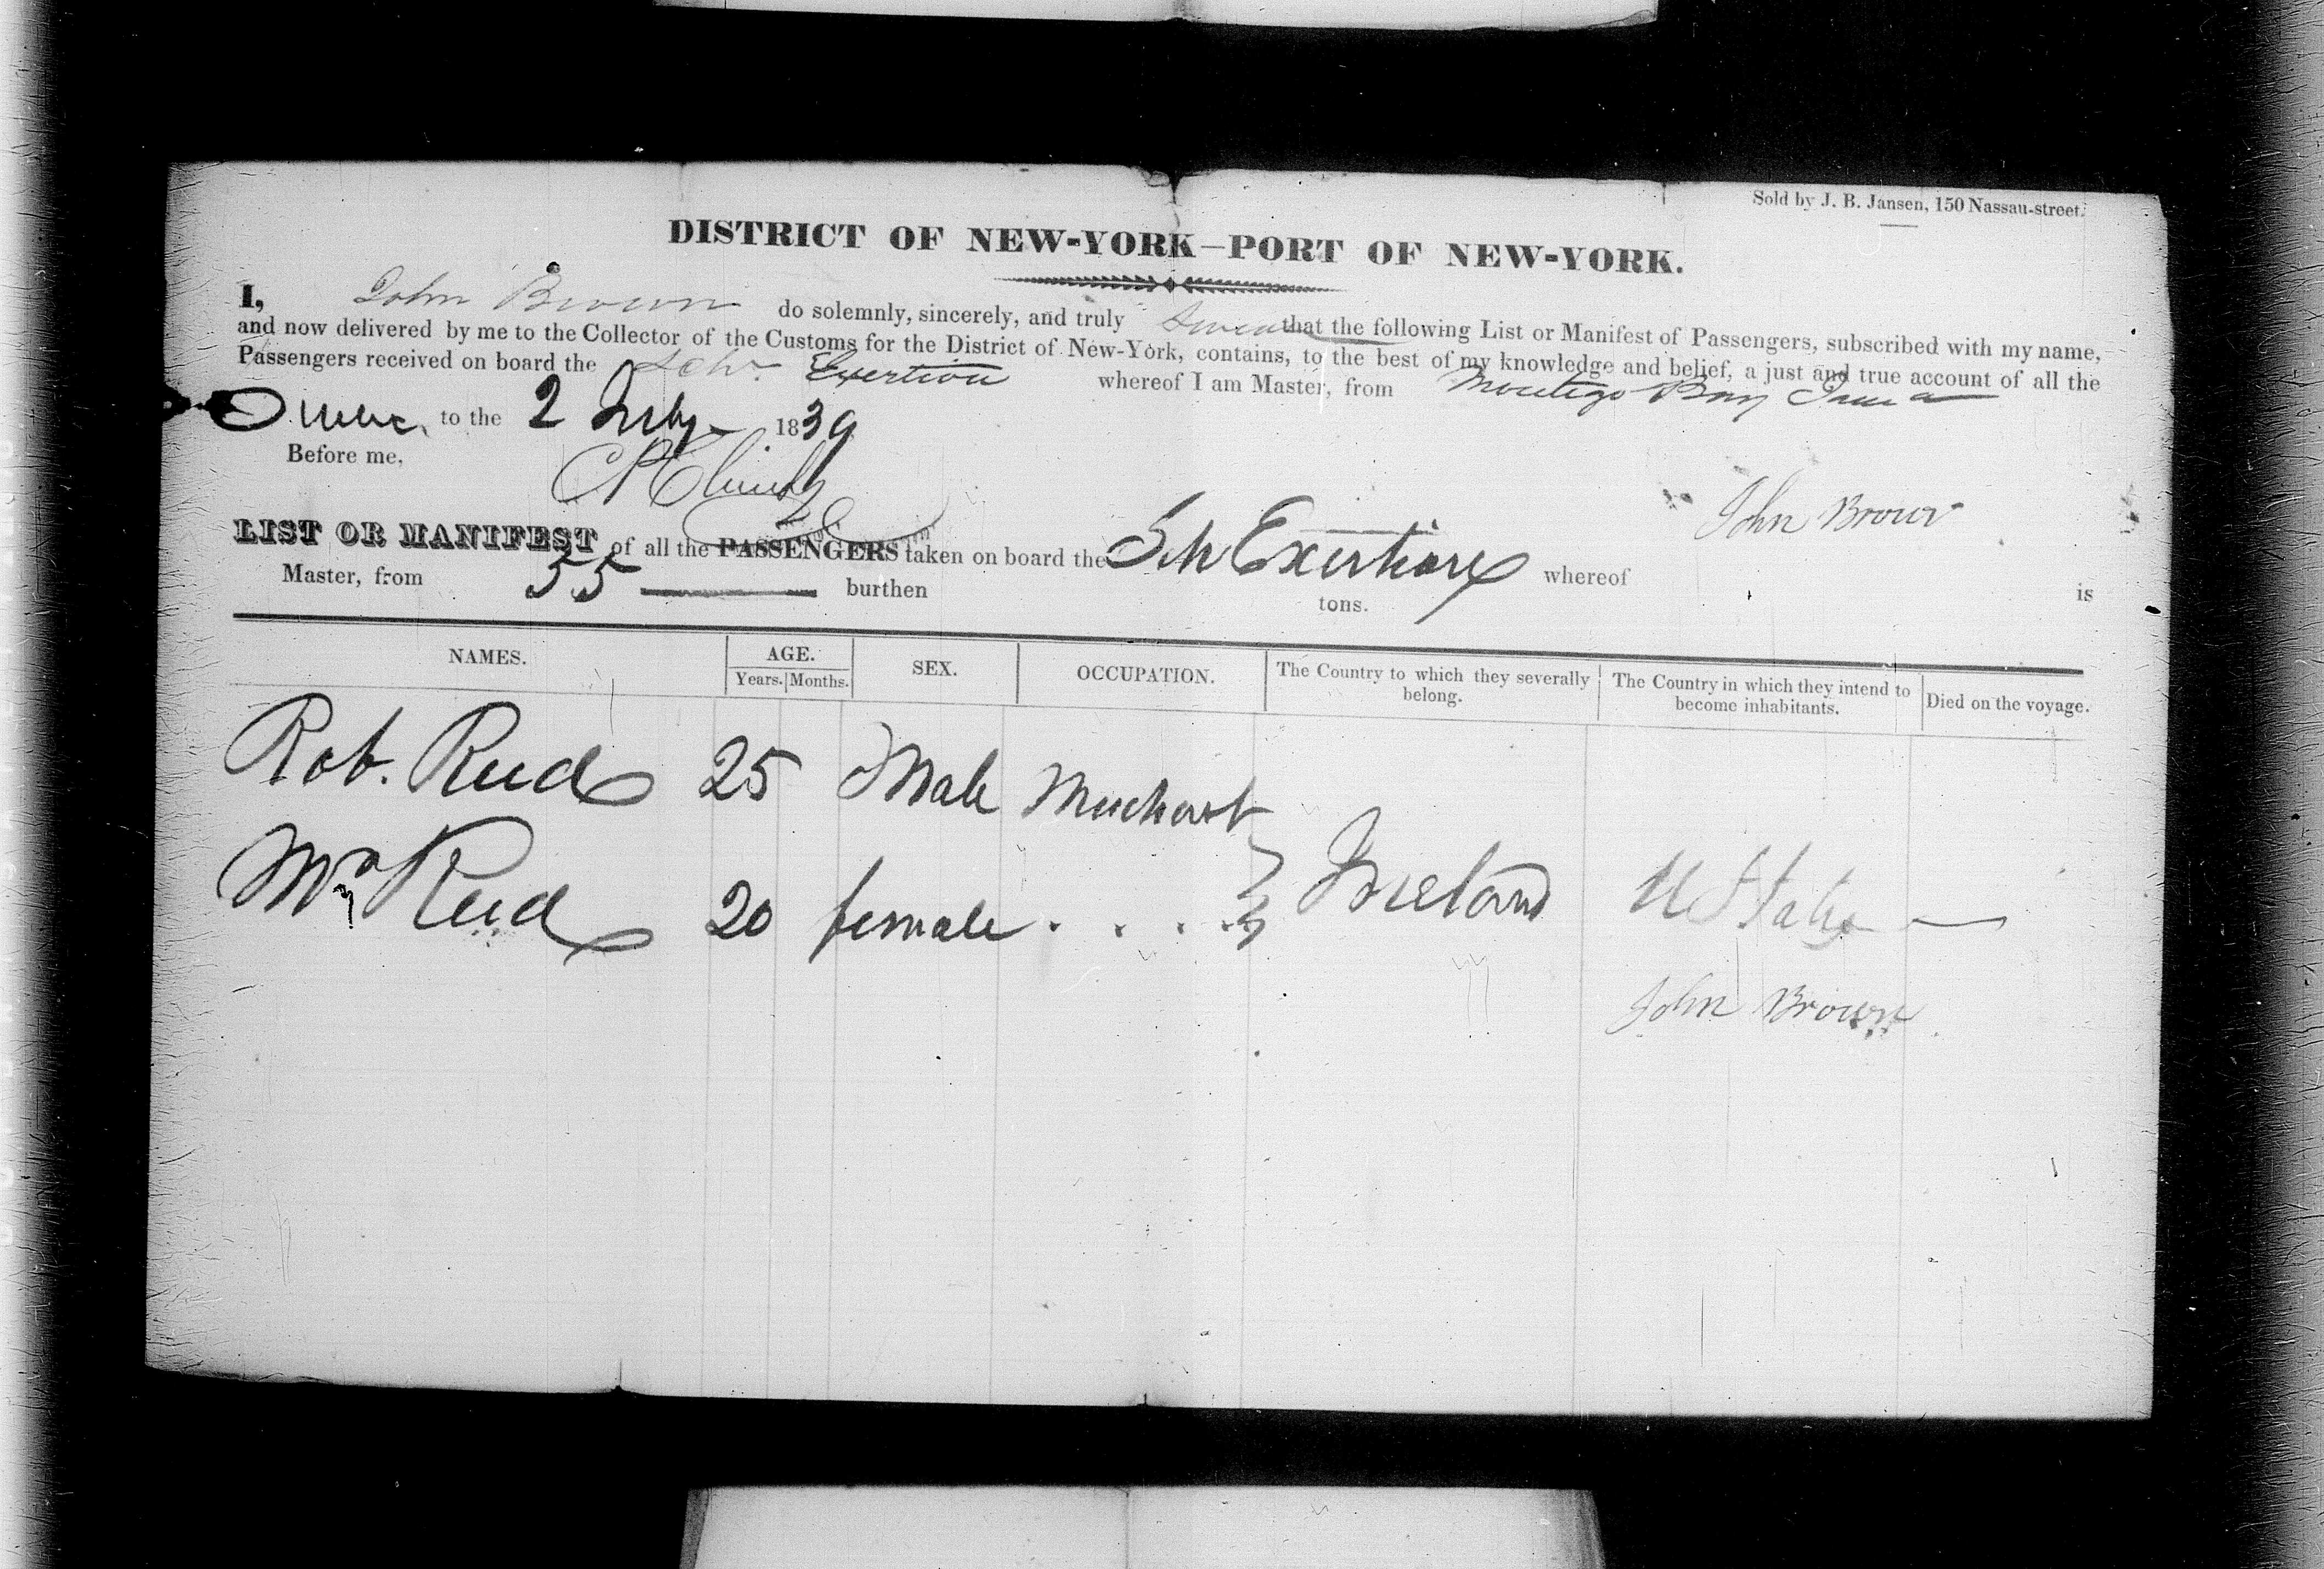 Sold by J. B. Jansen, 150 Nassau-street.
DISTRICT OF NEW-YORK—PORT OF NEW-YORK.
I, John Brown do solemnly, sincerely, and truly Swear that the following List or Manifest of Passengers, subscribed with my name,
and now delivered by me to the Collector of the Customs for the District of New-York, contains, to the best of my knowledge and belief, a just and true account of all the
Passengers received on board the Schr. Exertion whereof I am Master, from Montego Bay
to the 2 July 1839
Before me,
John Brown
LIST OR MANIFEST of all the PASSENGERS taken on board the Sch Exertion whereof is
Master, from 55 burthen tons.
NAMES. AGE. SEX. OCCUPATION. The Country to which they severally belong. The Country in which they intend to become inhabitants. Died on the voyage.
Years. Months.
Rob. Reid 25 Male Merchant
Mrs Reid 20 female . . . . Ireland U States —
John Brown